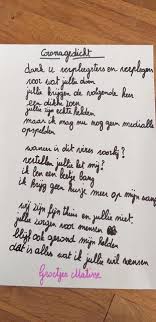 Coronagedicht
dank u verpleegsters en verplegers
voor wat jullie doen
jullie krijgen de volgende keer
een dikke zoen
jullie zijn echte helden
maar ik mag me nog geen medaille
opspelden
wanneer is dit virus voorbij?
vertellen jullie het mij?
ik ben een beetje bang
ik krijg geen kusje meer op mijn wang
wij zijn fijn thuis en jullie niet
jullie zorgen voor mensen
blijf ook gezond mijn helden
dat is alles wat ik jullie wil wensen
Groetjes